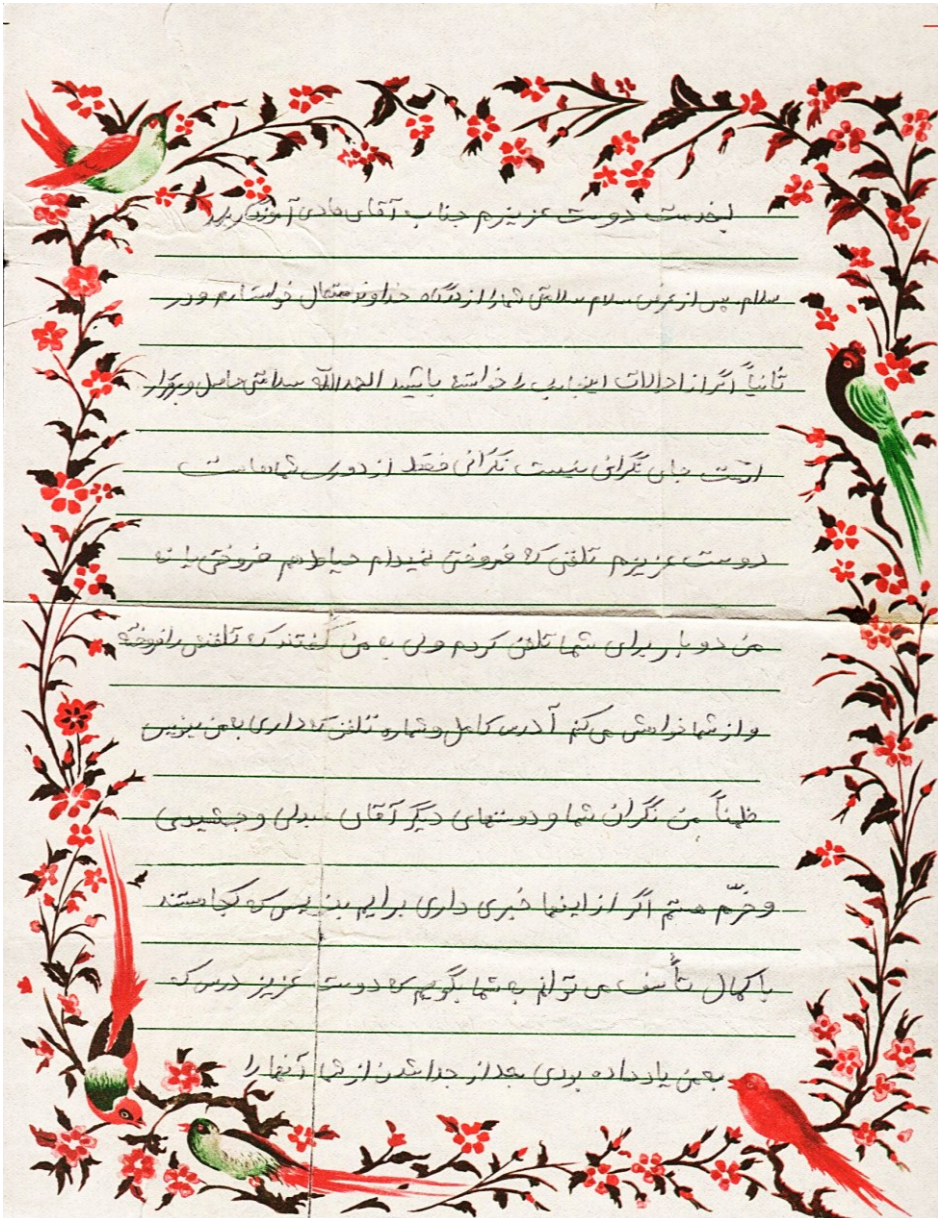 بخدمت دوست عزیزم جناب آقای هادی
سلام. پس از عرض سلام سلامتی شما را از درگاه خداوند متعال خواستارم و در
ثانیاً اگر از احوالات اینجانب را خواسته باشید الحمدالله سلامتی حاصل و برقرار
است جای نگرانی نیست نگرانی فقط از دوری شماهاست
دوست عزیزم تلفنی که فروختی نمیدام حیاط هم فروختی یا نه
من دو بار برای شما تلفن کردم ولی به من گفتند که تلفنش را فروخته
و از شما خواهش می کنم آدرس کامل و شماره تلفن که داری بمن بنویس
ظمناً من نگران شما و دوستهای دیگر آقای عبدلی و جمشیدی
و خرّم هستم اگر از اینها خبری داری برایم بنویس که کجا هستند
با کمال تأسف می توانم به شما بگویم که دوست عزیز درس که
بمن یاد داده بودی بعد از جدا شدن از شما آنها را